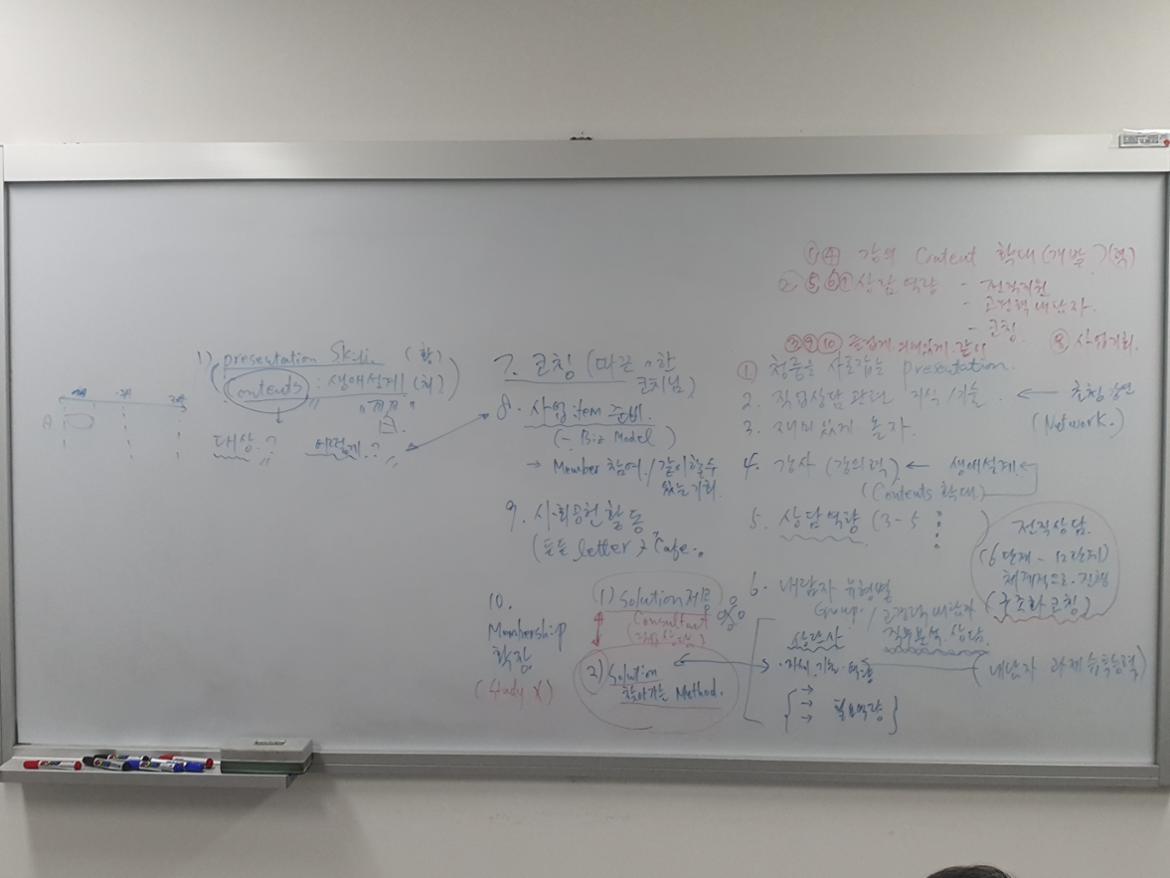 ①④ 강의 Content 확대(개발
② ⑤⑥⑦ 상담역량 - 전직지원
- 고경력 내담자.
- 코칭
③⑨⑩ 즐겁게. 의미있게. 같이
⑧ 사업기회.
① 청중을 사로잡는 presentation.
2. 직업상담 관련 지식/기술 ← 초청강연
(Network.)
3. 재미있게 놀자.
4. 강사 (강의력) ← 생애설계.
(Contents 확대)
5. 상담역량 (3-5 )
전직상담.
(6단계 - 12단계)
체계적으로. 진행
(구조화 코칭)
6. 내담자 유형별
Group. / 고경력 내담자
직무분석. 상담.
상담사
(내담자 과제 습득능력)
→
→ 필요역량
7. 코칭 (따끈 〃한
코치님)
8. 사업item 준비.
(- Biz Model )
→ Member 참여./같이할수
있는기회.
9. 사회공헌 활동
letter, Cafe.
10.
Membership
확장
(Study X)
1) Solution 제공
Consultant
2) Solution
찾아가는 Method.
1) presentation Skill
Contents : 생애설계
대상.? 어떻게.?